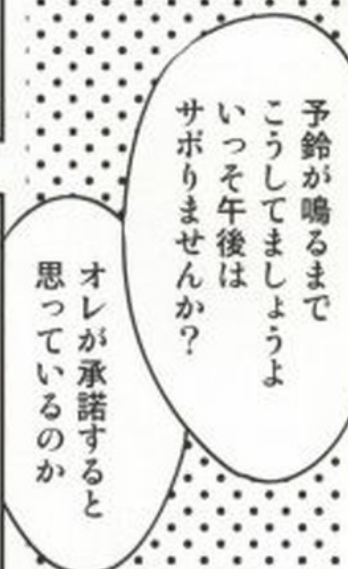 予鈴が鳴るまで
こうしてましょうよ
いっそ午後は
サボりませんか？
オレが承諾すると
思っているのか